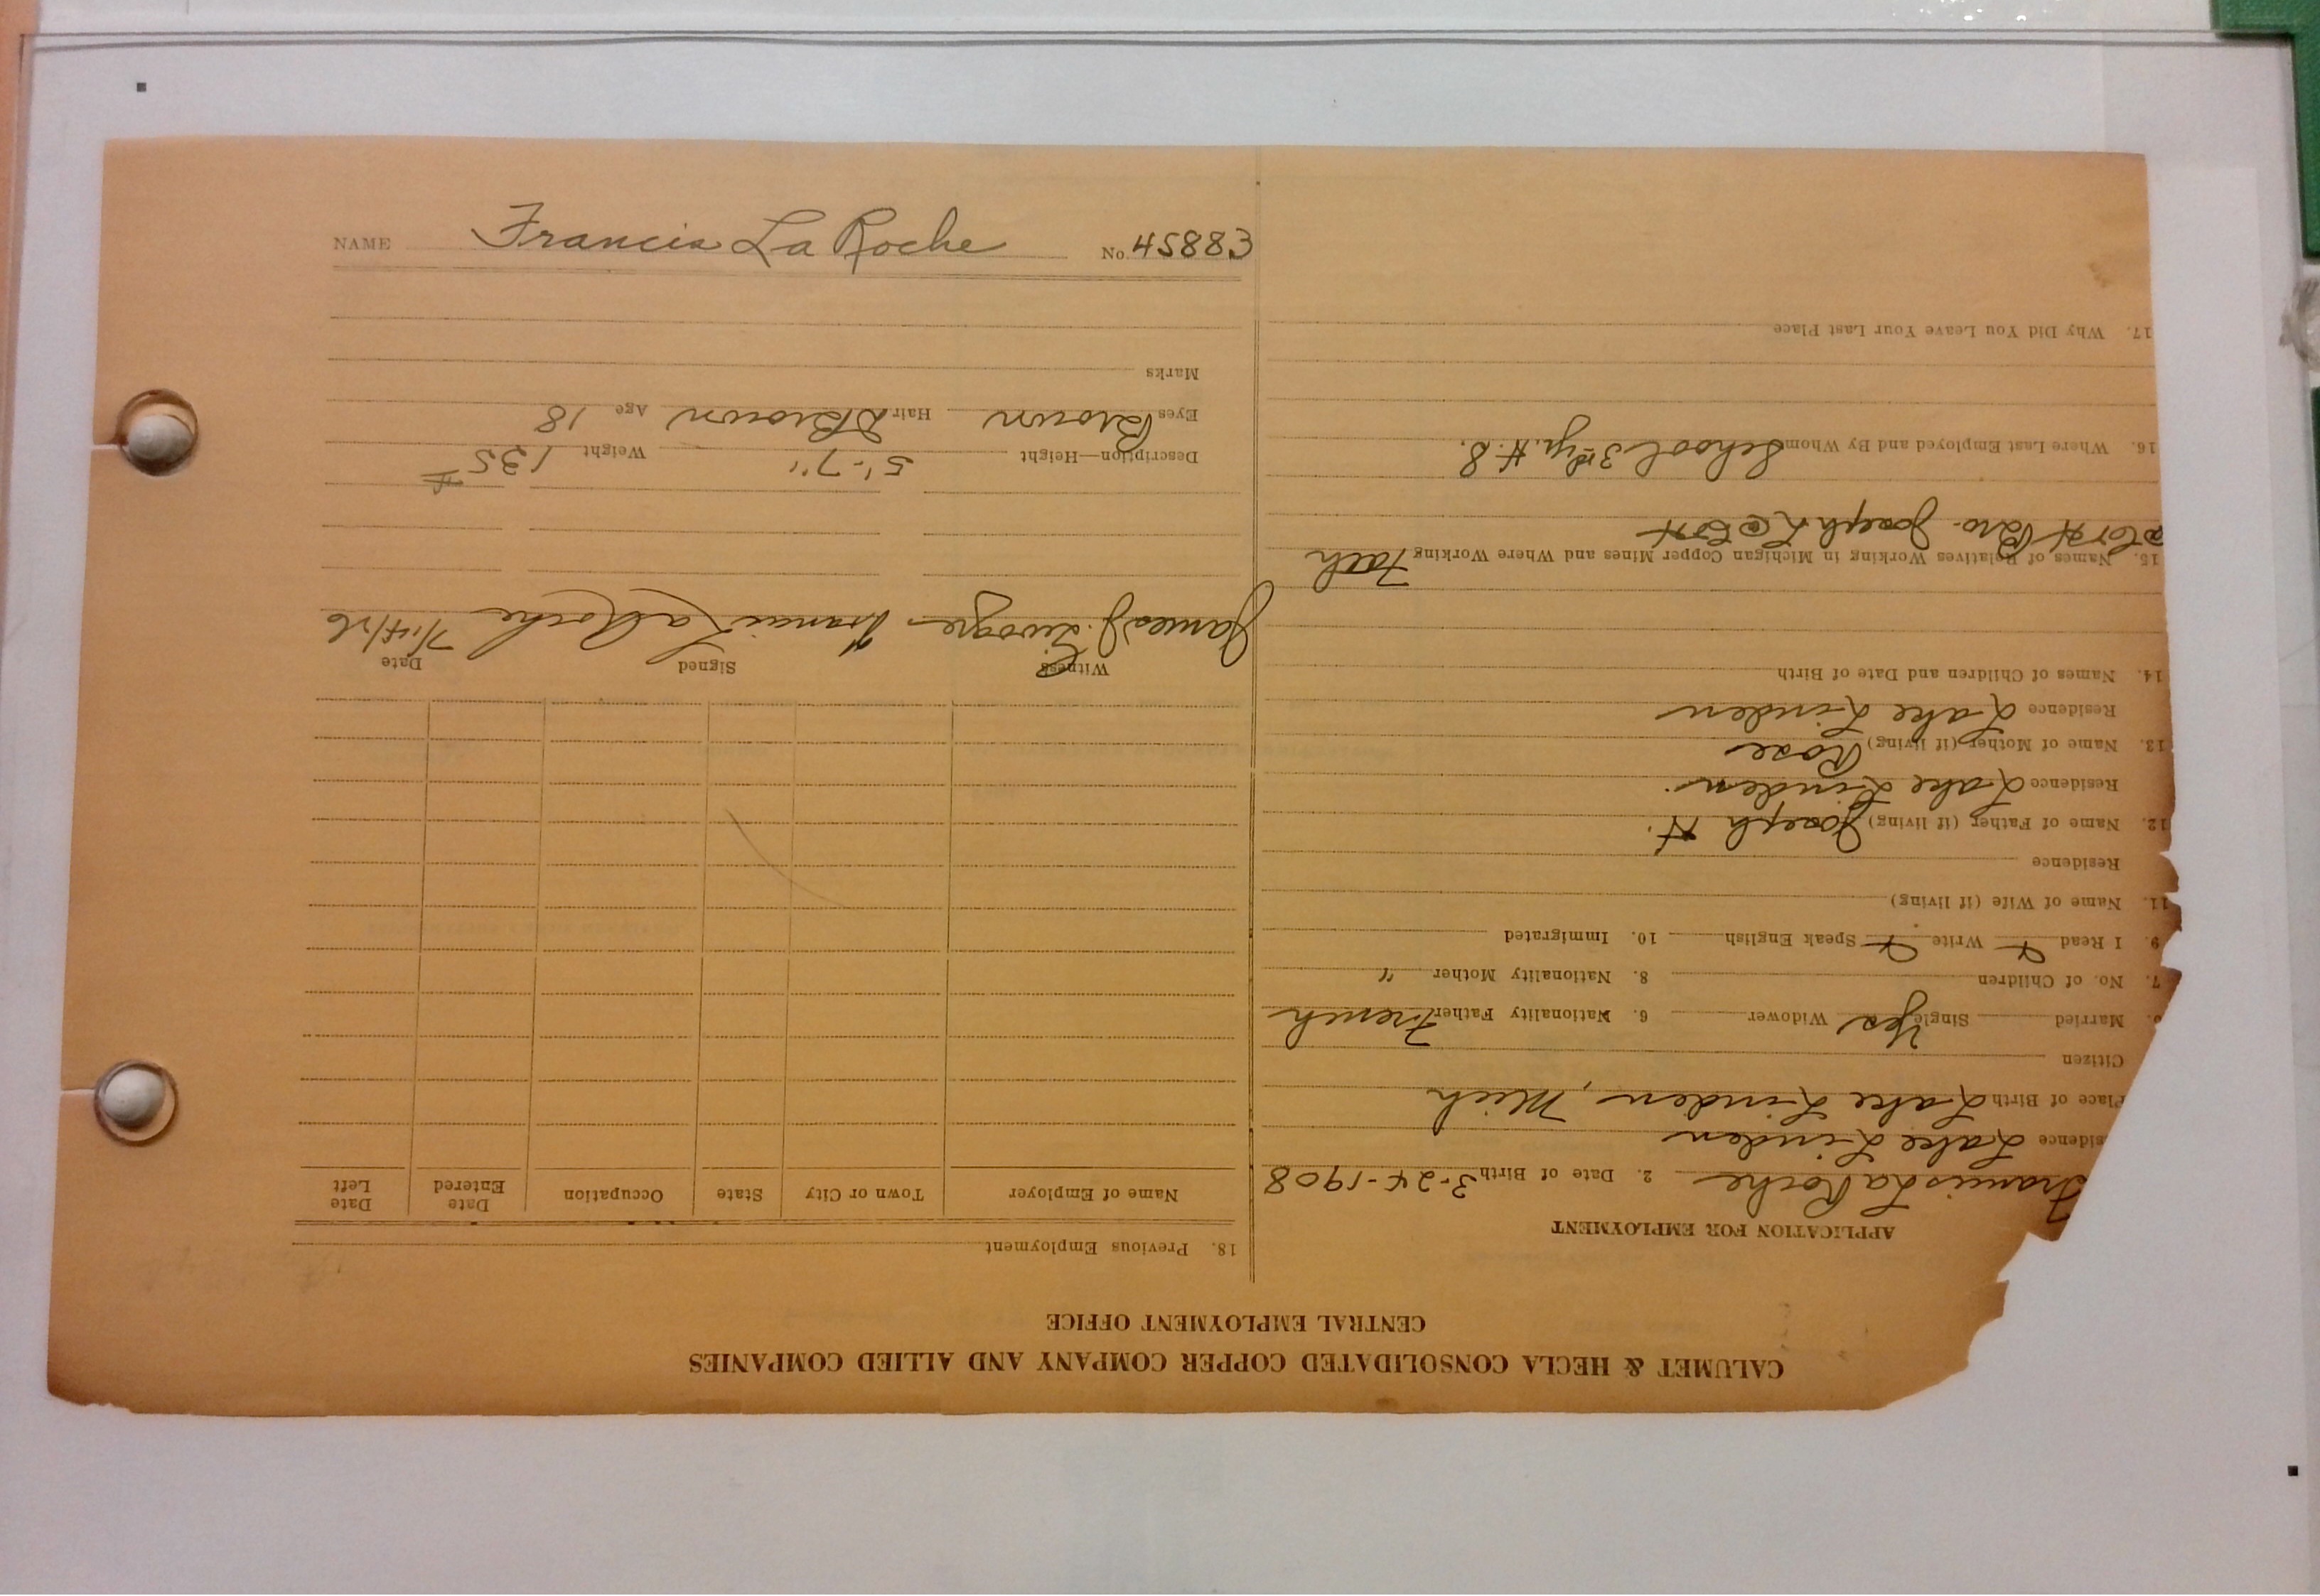 NAME Francis La Roche No. 45883
CALUMET & HECLA CONSOLIDATED COPPER COMPANY AND ALLIED COMPANIES
CENTRAL EMPLOYMENT OFFICE
APPLICATION FOR EMPLOYMENT
Francis La Roche 2. Date of Birth 3-24-1908
sidence Lake Linden
Place of Birth Lake Linden, Mich
Citizen
Married Single Yes Widower 6. Nationality Father French
7. No. of Children 8. Nationality Mother "
9. I Read Write Speak English 10. Immigrated
11. Name of Wife (if living)
Residence
12. Name of Father (if living) Joseph H.
Residence Lake Linden.
13. Name of Mother (if living) Rose
Residence Lake Linden
14. Names of Children and Date of Birth
15. Names of Relatives Working in Michigan Copper Mines and Where Working Fath
Bro. Joseph L
16. Where Last Employed and By Whom School 3rd yr. H. S.
17. Why Did You Leave Your Last Place
18. Previous Employment
Name of Employer Town or City State Occupation Date Entered Date Left
Witness Signed Date
James J. Francis La Roche
Description—Height 5'-7" Weight 135 #
Eyes Brown Hair D Brown Age 18
Marks